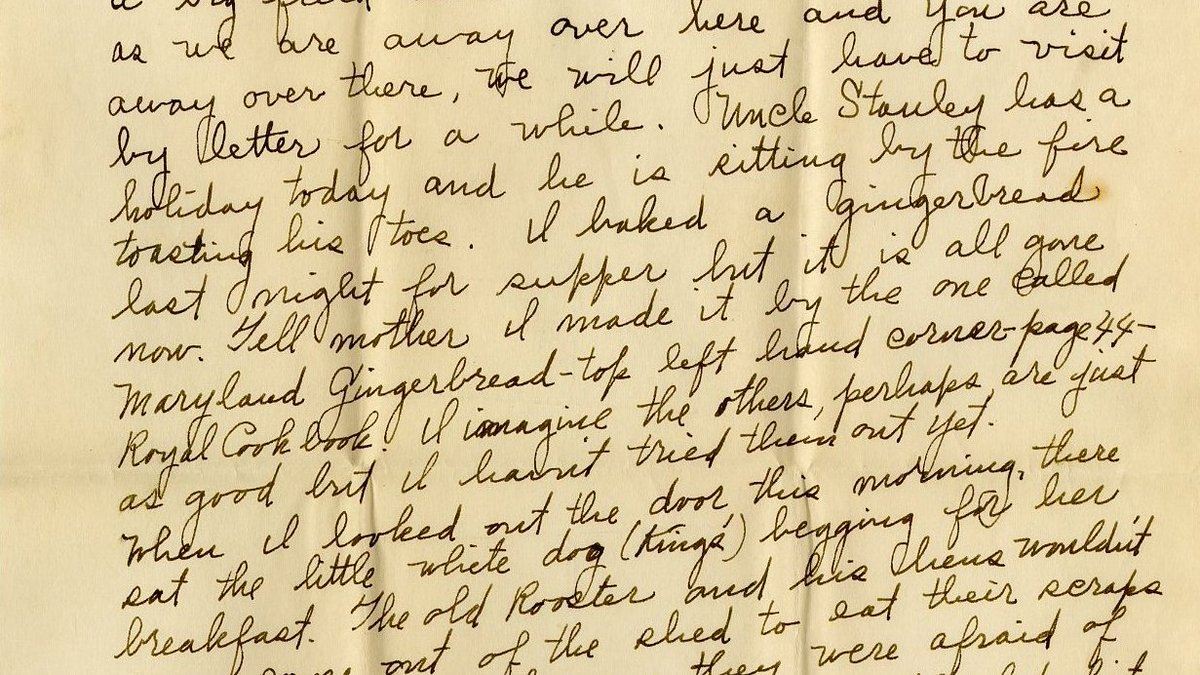 a big fried
as we are away over here and you are
away over there, we will just have to visit
by letter for a while. Uncle Stanley has a
holiday today and he is sitting by the fire
toasting his toes. I baked a gingerbread
last night for supper but it is all gone
now. Tell mother I made it by the one called
Maryland Gingerbread-top left hand corner-page 44-
Royal Cook book. I imagine the others, perhaps, are just
as good but I havn't tried them out yet.
When I looked out the door this morning, there
sat the little white dog (Kings') begging for her
breakfast. The old Rooster and his hens wouldn't
out of the shed to eat their scraps
they were afraid of